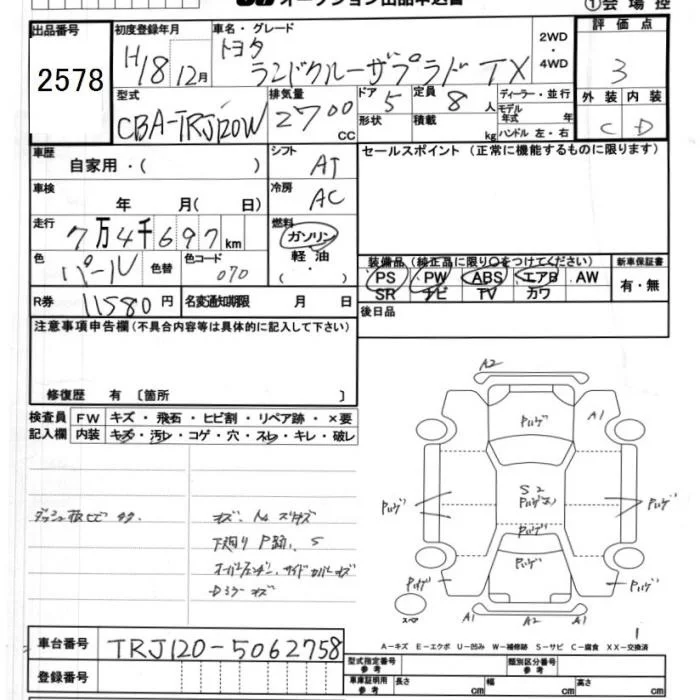 オークション出品申込書
①会場控
出品番号
2578
初度登録年月
H18 12月
車名・グレード
トヨタ
ランドクルーザプラド TX
2WD
・
4WD
評価点
3
外装 内装
C D
型式
CBA-TRJ120W
排気量
2700
cc
ドア
5
定員
8 人
形状
積載
kg
ディーラー・並行
モデル
年式 年
ハンドル 左・右
車歴
自家用・( )
シフト
AT
セールスポイント (正常に機能するものに限ります)
車検
年 月( 日)
冷房
AC
走行
7万4千697km
燃料
ガソリン
軽油
( ・ )
色
パール
色替
色コード
070
装備品 (検正品に限り○をつけてください)
PS PW ABS エアB AW
SR ナビ TV カワ
新車保証書
有・無
R券
11580円
名変通知期限 月 日
後日品
注意事項申告欄 (不具合内容等は具体的に記入して下さい)
修復歴 有 〔箇所 〕
検査員
記入欄
FW キズ・飛石・ヒビ割・リペア跡・×要
内装 キズ・汚レ・コゲ・穴・スレ・キレ・破レ
下廻り P跡、S
A2
A1
Pハゲ
Pハゲ
S2
Pハゲ
Pハゲ
Pハゲ
Pハゲ
Pハゲ
Pハゲ
スペア
A1 A2 A1
A-キズ E-エクボ U-凹み W-補修跡 S-サビ C-腐食 XX-交換済
車台番号
TRJ120-5062758
登録番号
型式指定番号
参考
類別区分番号
参考
車庫証明用
参考
長さ cm
幅 cm
高さ cm